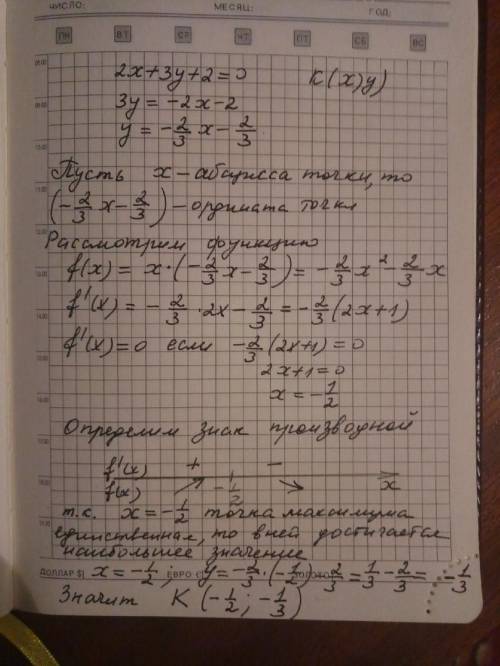 ЧИСЛО: МЕСЯЦ: ГОД:
ПН ВТ СР ЧТ ПТ СБ ВС
2x+3y+2=0 K(x;y)
3y = -2x-2
y = -2/3 x - 2/3
Пусть x - абсцисса точки, то
(-2/3 x - 2/3) - ордината точки
Рассмотрим функцию
f(x) = x·(-2/3 x - 2/3) = -2/3 x² - 2/3 x
f'(x) = -2/3 · 2x - 2/3 = -2/3 (2x+1)
f'(x)=0 если -2/3 (2x+1) = 0
2x+1=0
x = -1/2
Определим знак производной
f'(x) + -
f(x) -1/2 x
т.к. x = -1/2 точка максимума
единственная, то в ней достигается
наибольшее значение
ДОЛЛАР $ x = -1/2; ЕВРО y = -2/3 · (-1/2) - 2/3 = 1/3 - 2/3 = -1/3
Значит K (-1/2; -1/3)